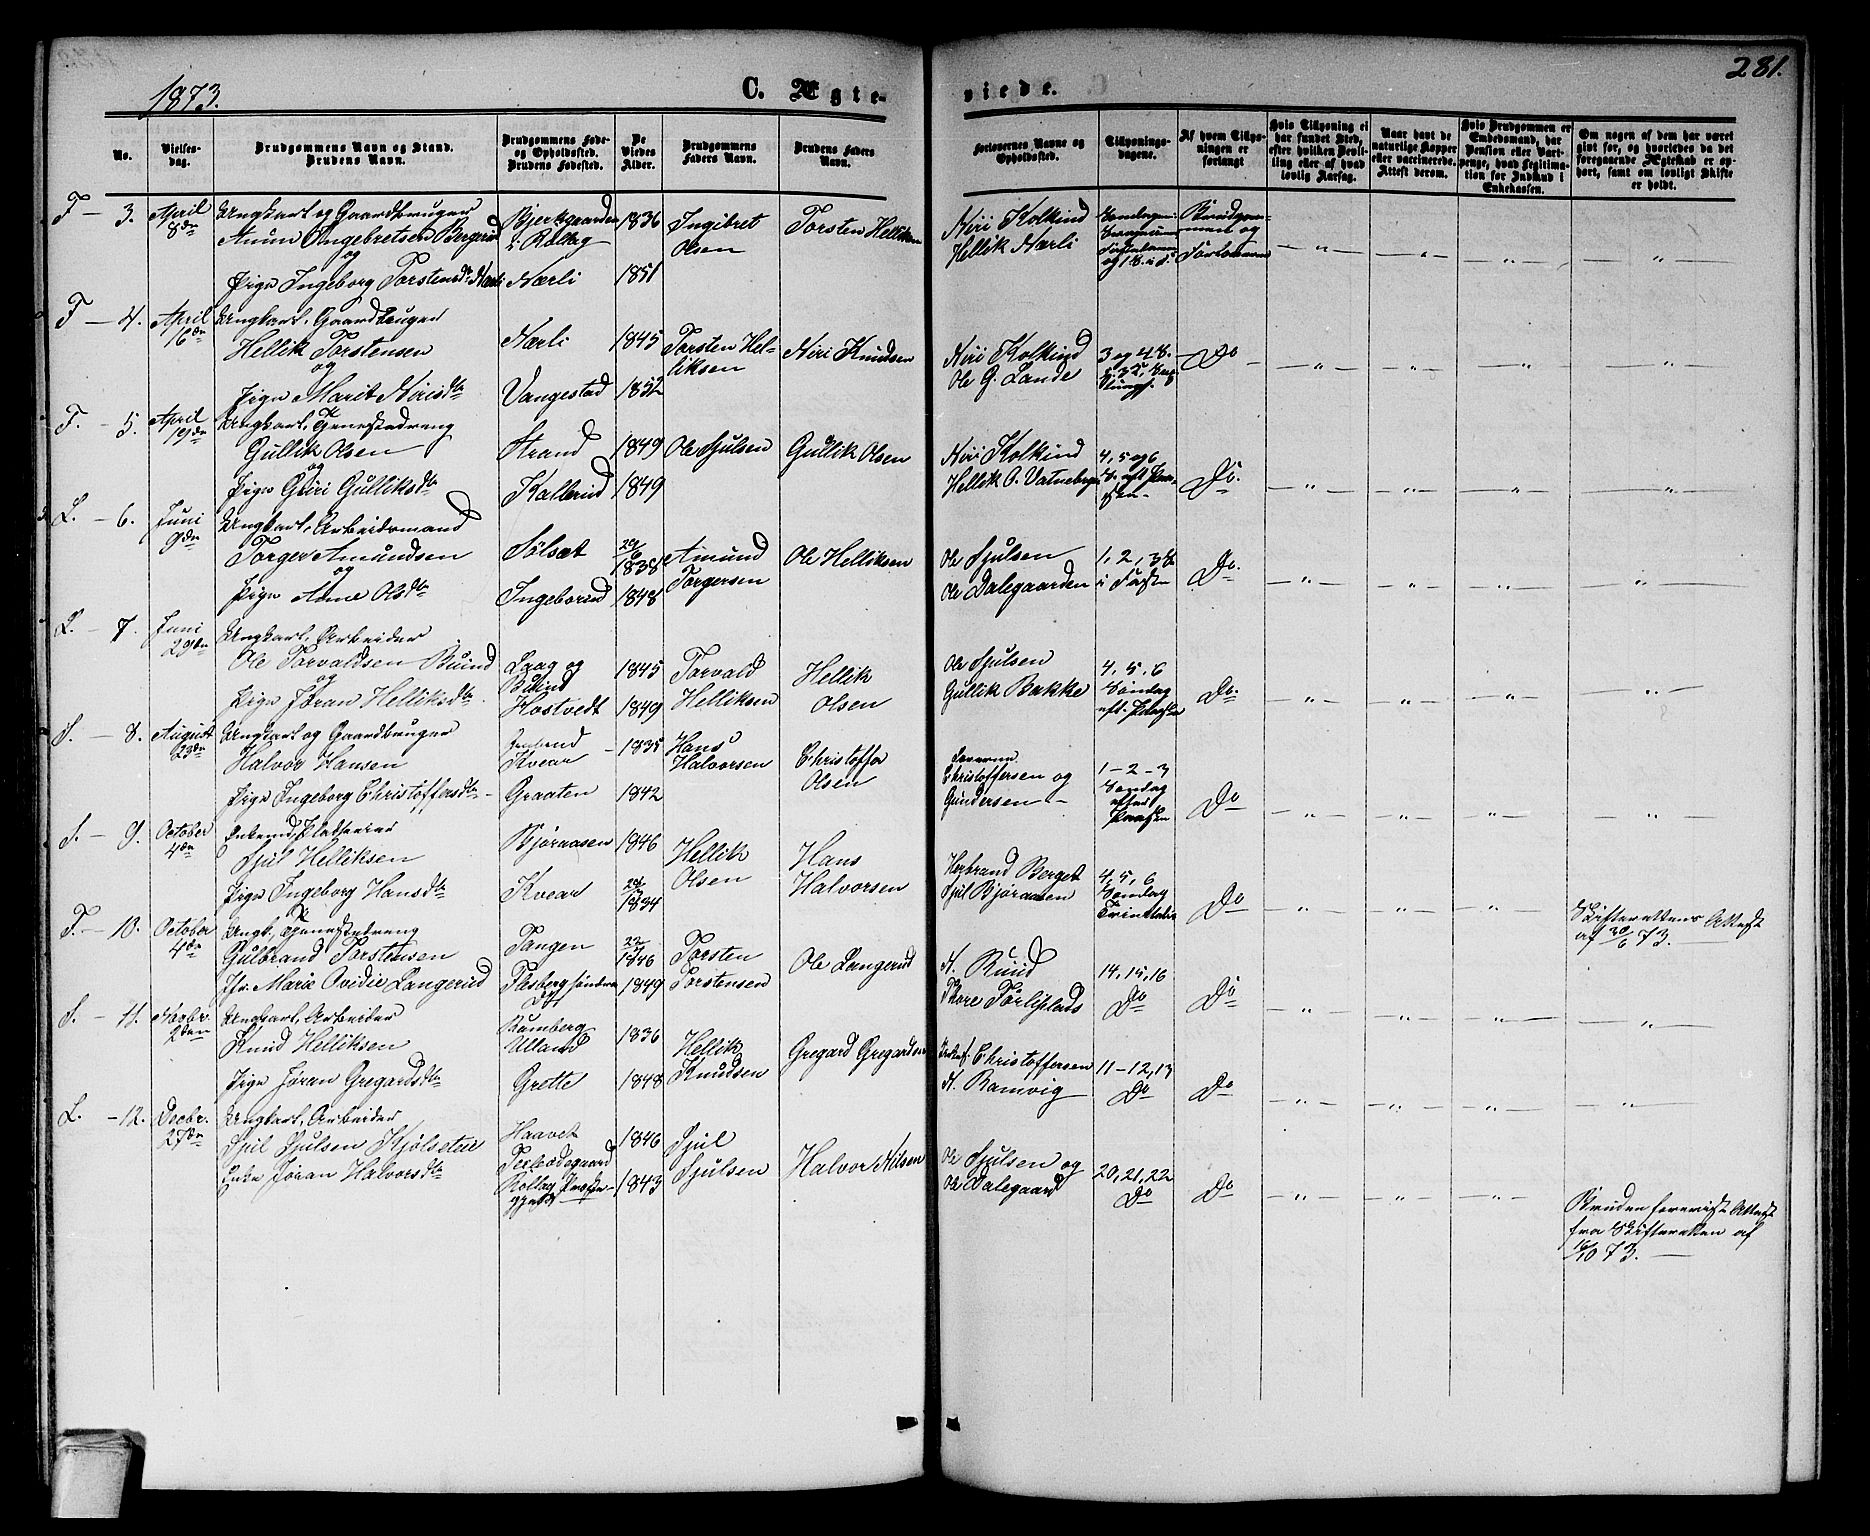 1873.
C. Ægte-
viede.
281.
No.
Vielses-
dag.
Brudgommens Navn og Stand.
Brudens Navn.
Brudgommens Føde-
og Opholdssted.
Brudens Fødested.
De
Viedes
Alder.
Brudgommens
Faders Navn.
Brudens Faders
Navn.
Forlovernes Navne og
Opholdssted.
Tillysnings-
dagene.
Af hvem Tillys-
ningen er
forlangt
Hvis Tillysning ei
har fundet Sted,
efter hvilken Bevil-
ling eller af hvad
lovlig Aarsag.
Naar havt de
naturlige Kopper
eller vaccinerede.
Attest derom.
Hvis Brudgommen er
Embedsmand, har
Pension eller Vart-
penge, hvad Legitima-
tion for Indskud i
Enkekassen.
Om nogen af dem har været
givt før, og hvorledes da det
foregaaende Ægteskab er op-
hørt, samt om lovligt Skifte
er holdt.
F - 3. April
8de
Ungkarl og Gaardbruger
Anun Ingebretsen Bergerud
og
Pige Ingeborg Torstensdtr Nærli
Bjerkgaarden
i Rollag
Nærli
1836
1851
Ingibret
Olsen
Torsten Helliksen
Niri Kolkind
Hellik Nærli
og
F - 4. April
16de
Ungkarl, Gaardbruger
Hellik Torstensen
og
Pige Marit Nirisdtr
Nærli
Vangestad
1845
1852
Torsten Hel-
liksen
Niri Knudsen
Niri Kolkind
Ole G. Lande
3 og 4 S.
Do
F. - 5. April
19de
Ungkarl, Tjenestedreng
Gullik Olsen
og
Pige Guri Gulliksdtr
Strand
Kallerud
1849
1849
Ole Sjulsen
Gullik Olsen
Niri Kolkind
Hellik O. Vatnebryn
4, 5 og 6
S. eft Paa-
sken
Do.
L. - 6. Juni
9de
Ungkarl, Arbeidsmand
Torger Amundsen
og
Pige Anne Olsdtr
Sølsæt
Ingeborud
29/6
1838
1848
Amund
Torgersen
Ole Helliksen
Ole Sjulsen
Ole Dalegaarden
1, 2, 3 S.
i Faste
Do.
L. - 7. Juni
29de
Ungkarl, Arbeider
Ole Torvaldsen Buind
og
Pige Jøran Helliksdtr
Laag og
Buind
Kostvedt
1845
1849
Torvald
Helliksen
Hellik
Olsen
Ole Sjulsen
Gullik Bakke
4, 5, 6
Søndag
eft. Paaske
Do.
S. - 8. August
23de
Ungkarl og Gaardbruger
Halvor Hansen
Pige Ingeborg Christoffersdtr
Kvear
Graaten
1835
1842
Hans
Halvorsen
Christoffer
Olsen
Christoffersen og
Gundersen
1 - 2 - 3
Søndag
efter
Paaske
Do
S. - 9. October
4de
Enkemd, Pladseier
Sjul Helliksen
Pige Ingeborg Hansdtr
Bjøraasen
Kvear
1846
1834
Hellik
Olsen
Hans
Halvorsen
Herbrand Berget
Sjul Bjøraasen
4, 5, 6
Søndag
Trinitatis
Do
Skifterettens Attest
af 30/6 73.
F. - 10. October
4de
Ungk. Tjenestedreng
Gulbrand Torstensen
Jfr. Marie Ovidie Langerud
Tangen
Flesberg søndre
1846
1849
Torsten
Torstensen
Ole Langerud
N. Ruud
Thore Førliplads
14, 15, 16
Do
Do
S. - 11. Novbr.
2den
Ungkarl, Arbeider
Knud Helliksen
Pige Jøran Gregardsdtr
Rumberg
Ulland
Grette
1836
1848
Hellik
Knudsen
Gregard Gregardsen
Christoffersen
N. Ramvig
11 - 12, 13
Do
Do
L. - 12. Decbr.
27de
Ungkarl, Arbeider
Sjul Sjulsen Kjølsetue
Enke Jøran Halvorsdtr
Haavet
Rollag Præste-
gjeld
1846
1843
Sjul
Sjulsen
Halvor Nilsen
Ole Sjulsen og
Ole Dalegaard
20, 21, 22
Do
Do
Bruden foreviist Attest
fra Skifteretten af
16/10 73.